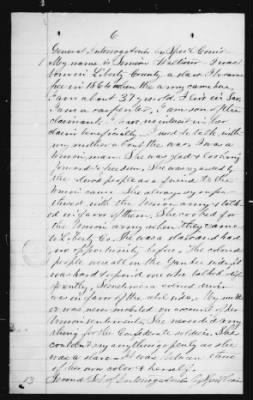 6
General Interrogatories by Spec Com's
1 My name is Simon Walthour I was
born in Liberty County a slave I became
free in 1864 when the army came here,
I am about 37 years old. I live in Sav.
I am a carpenter, I am son of the
claimant. I have no interest in her
claim beneficially I used to talk with
my mother about the war. I was a
Union man. She was glad & looking
forward to freedom. She was regarded by
the colored people as a friend to the
Union cause She always sympa-
thized with the Union army & talk-
ed in favor of them. She cooked for
the Union army when they came
to Liberty Co. She was a slave and had
no opportunity before. The colored
people were all on the Yankee side, it
was hard to find one who talked dif-
ferently,
was in favor of the reb side. My moth-
er was never molested on account of her
Union sentiments, She never did any
thing for the Confederate soldiers. She
couldn't say anything openly as she
was a slave. It was between those
of her own color & herself.
13 Second Set of Interrogatories by